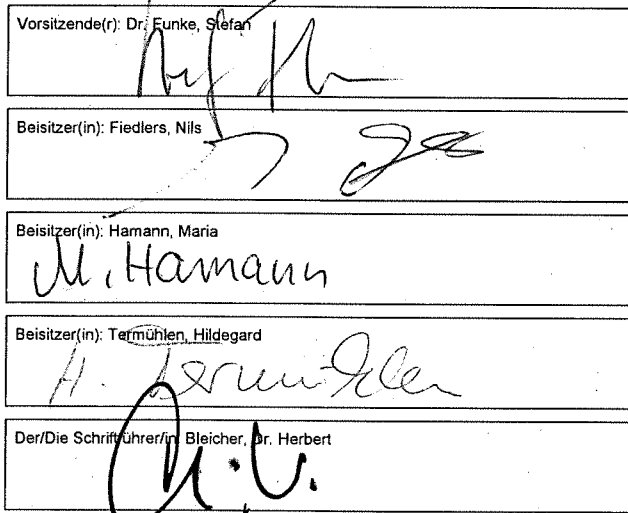 Vorsitzende(r): Dr. Funke, Stefan
Beisitzer(in): Fiedlers, Nils
Beisitzer(in): Hamann, Maria
M. Hamann
Beisitzer(in): Termühlen, Hildegard
H. Termühlen
Der/Die Schriftführer/in Bleicher, Dr. Herbert